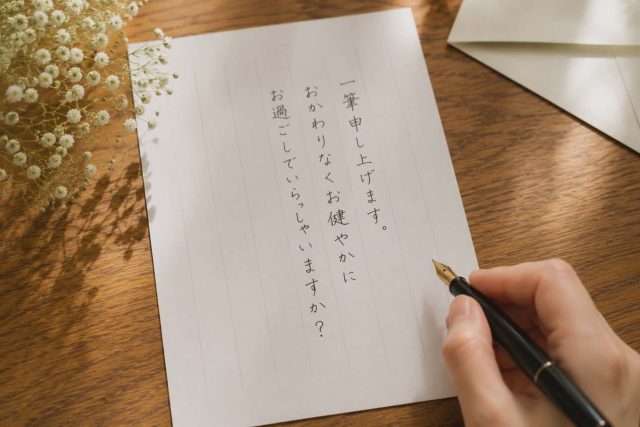 一筆申し上げます。
おかわりなくお健やかに
お過ごしでいらっしゃいますか？